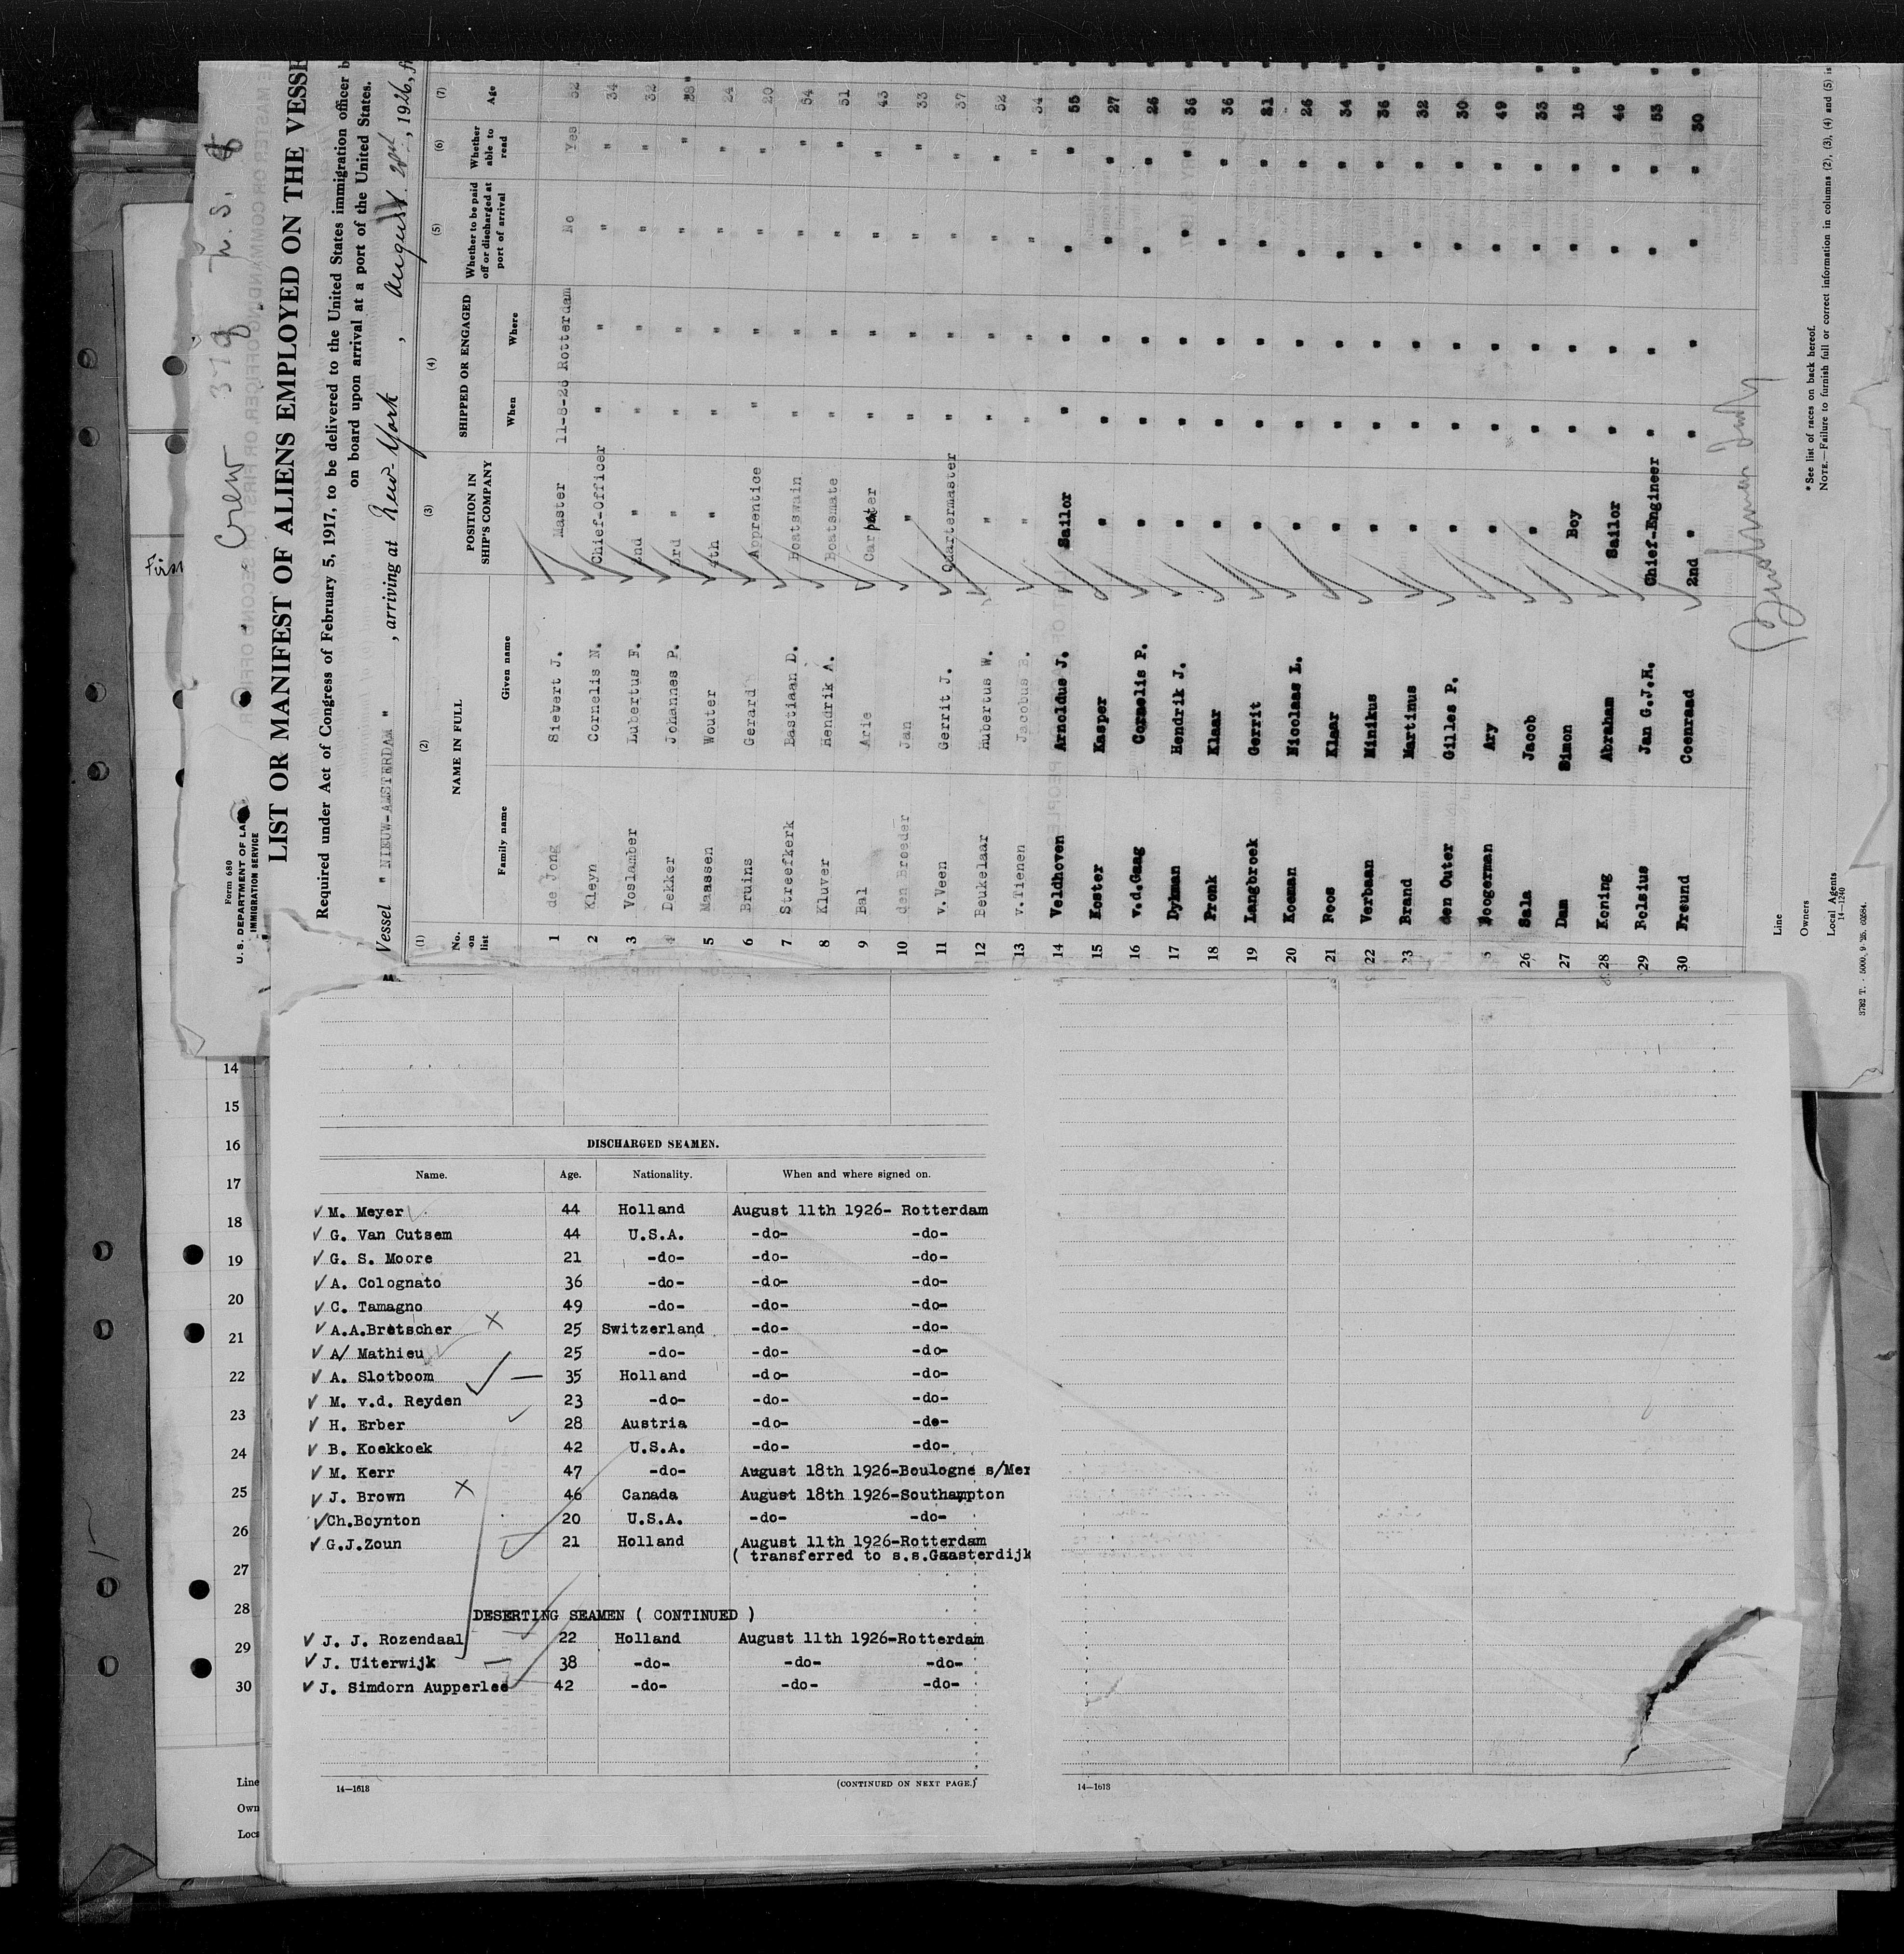 Crew
Form 680
U. S. DEPARTMENT OF LA
IMMIGRATION SERVICE
LIST OR MANIFEST OF ALIENS EMPLOYED ON THE VESSE
Required under Act of Congress of February 5, 1917, to be delivered to the United States immigration officer b
on board upon arrival at a port of the United States.
Vessel " NIEUW-AMSTERDAM " , arriving at New-York , August 20th, 1926, fr
(1) (2) (3) (4) (5) (6) (7)
No. on list NAME IN FULL POSITION IN SHIP'S COMPANY SHIPPED OR ENGAGED Whether to be paid off or discharged at port of arrival Whether able to read Age
Family name Given name When Where
1 de Jong Sievert J. Master 11-8-26 Rotterdam No Yes 52
2 Kleyn Cornelis N. Chief-Officer " " " " 34
3 Voslamber Lubertus F. 2nd " " " " " 32
4 Dekker Johannes P. 3rd " " " " " 28
5 Maassen Wouter 4th " " " " " 24
6 Bruins Gerard Apprentice " " " " 20
7 Streefkerk Bastiaan D. Boatswain " " " " 54
8 Kluver Hendrik A. Boatsmate " " " " 51
9 Bal Arie Carpter " " " " 43
10 den Broeder Jan " " " " " 33
11 v.Veen Gerrit J. Quartermaster " " " " 37
12 Beukelaar Hubertus W. " " " " " 52
13 v.Tienen Jacobus B. " " " " " 34
14 Veldhoven Arnoldus J. Sailor " " " " 55
15 Koster Kasper " " " " " 27
16 v.d.Gaag Cornelis P. " " " " " 26
17 Dykman Hendrik J. " " " " " 36
18 Pronk Klaar " " " " " 36
19 Langbroek Gerrit " " " " " 21
20 Koeman Nicolaas L. " " " " " 26
21 Roos Klaar " " " " " 34
22 Verbaan Minikus " " " " " 36
23 Brand Martinus " " " " " 32
den Outer Gilles P. " " " " " 30
5 Hoogerman Ary " " " " " 49
26 Sala Jacob " " " " " 33
27 Dam Simon Boy " " " " 15
28 Koning Abraham Sailor " " " " 46
29 Rolsius Jan G.J.H. Chief-Engineer " " " " 53
30 Freund Coenraad 2nd " " " " " 30
Line
Owners
Local Agents
14—1240
3782 T. - 5000. 9 '25. 60284.
* See list of races on back hereof.
NOTE.—Failure to furnish full or correct information in columns (2), (3), (4) and (5) is
First
14
15
16
17
18
19
20
21
22
23
24
25
26
27
28
29
30
Line
Own
Loca
DISCHARGED SEAMEN.
Name. Age. Nationality. When and where signed on.
M. Meyer 44 Holland August 11th 1926- Rotterdam
G. Van Cutsem 44 U.S.A. -do- -do-
G. S. Moore 21 -do- -do- -do-
A. Colognato 36 -do- -do- -do-
C. Tamagno 49 -do- -do- -do-
A.A.Bretscher 25 Switzerland -do- -do-
A/ Mathieu 25 -do- -do- -do-
A. Slotboom 35 Holland -do- -do-
M. v.d. Reyden 23 -do- -do- -do-
H. Erber 28 Austria -do- -do-
B. Koekkoek 42 U.S.A. -do- -do-
M. Kerr 47 -do- August 18th 1926-Boulogne s/Mer
J. Brown 46 Canada August 18th 1926-Southampton
Ch.Boynton 20 U.S.A. -do- -do-
G.J.Zoun 21 Holland August 11th 1926-Rotterdam
( transferred to s.s.Gaasterdijk
DESERTING SEAMEN ( CONTINUED )
J. J. Rozendaal 22 Holland August 11th 1926-Rotterdam
J. Uiterwijk 38 -do- -do- -do-
J. Simdorn Aupperlee 42 -do- -do- -do-
14—1613 (CONTINUED ON NEXT PAGE.) 14—1613